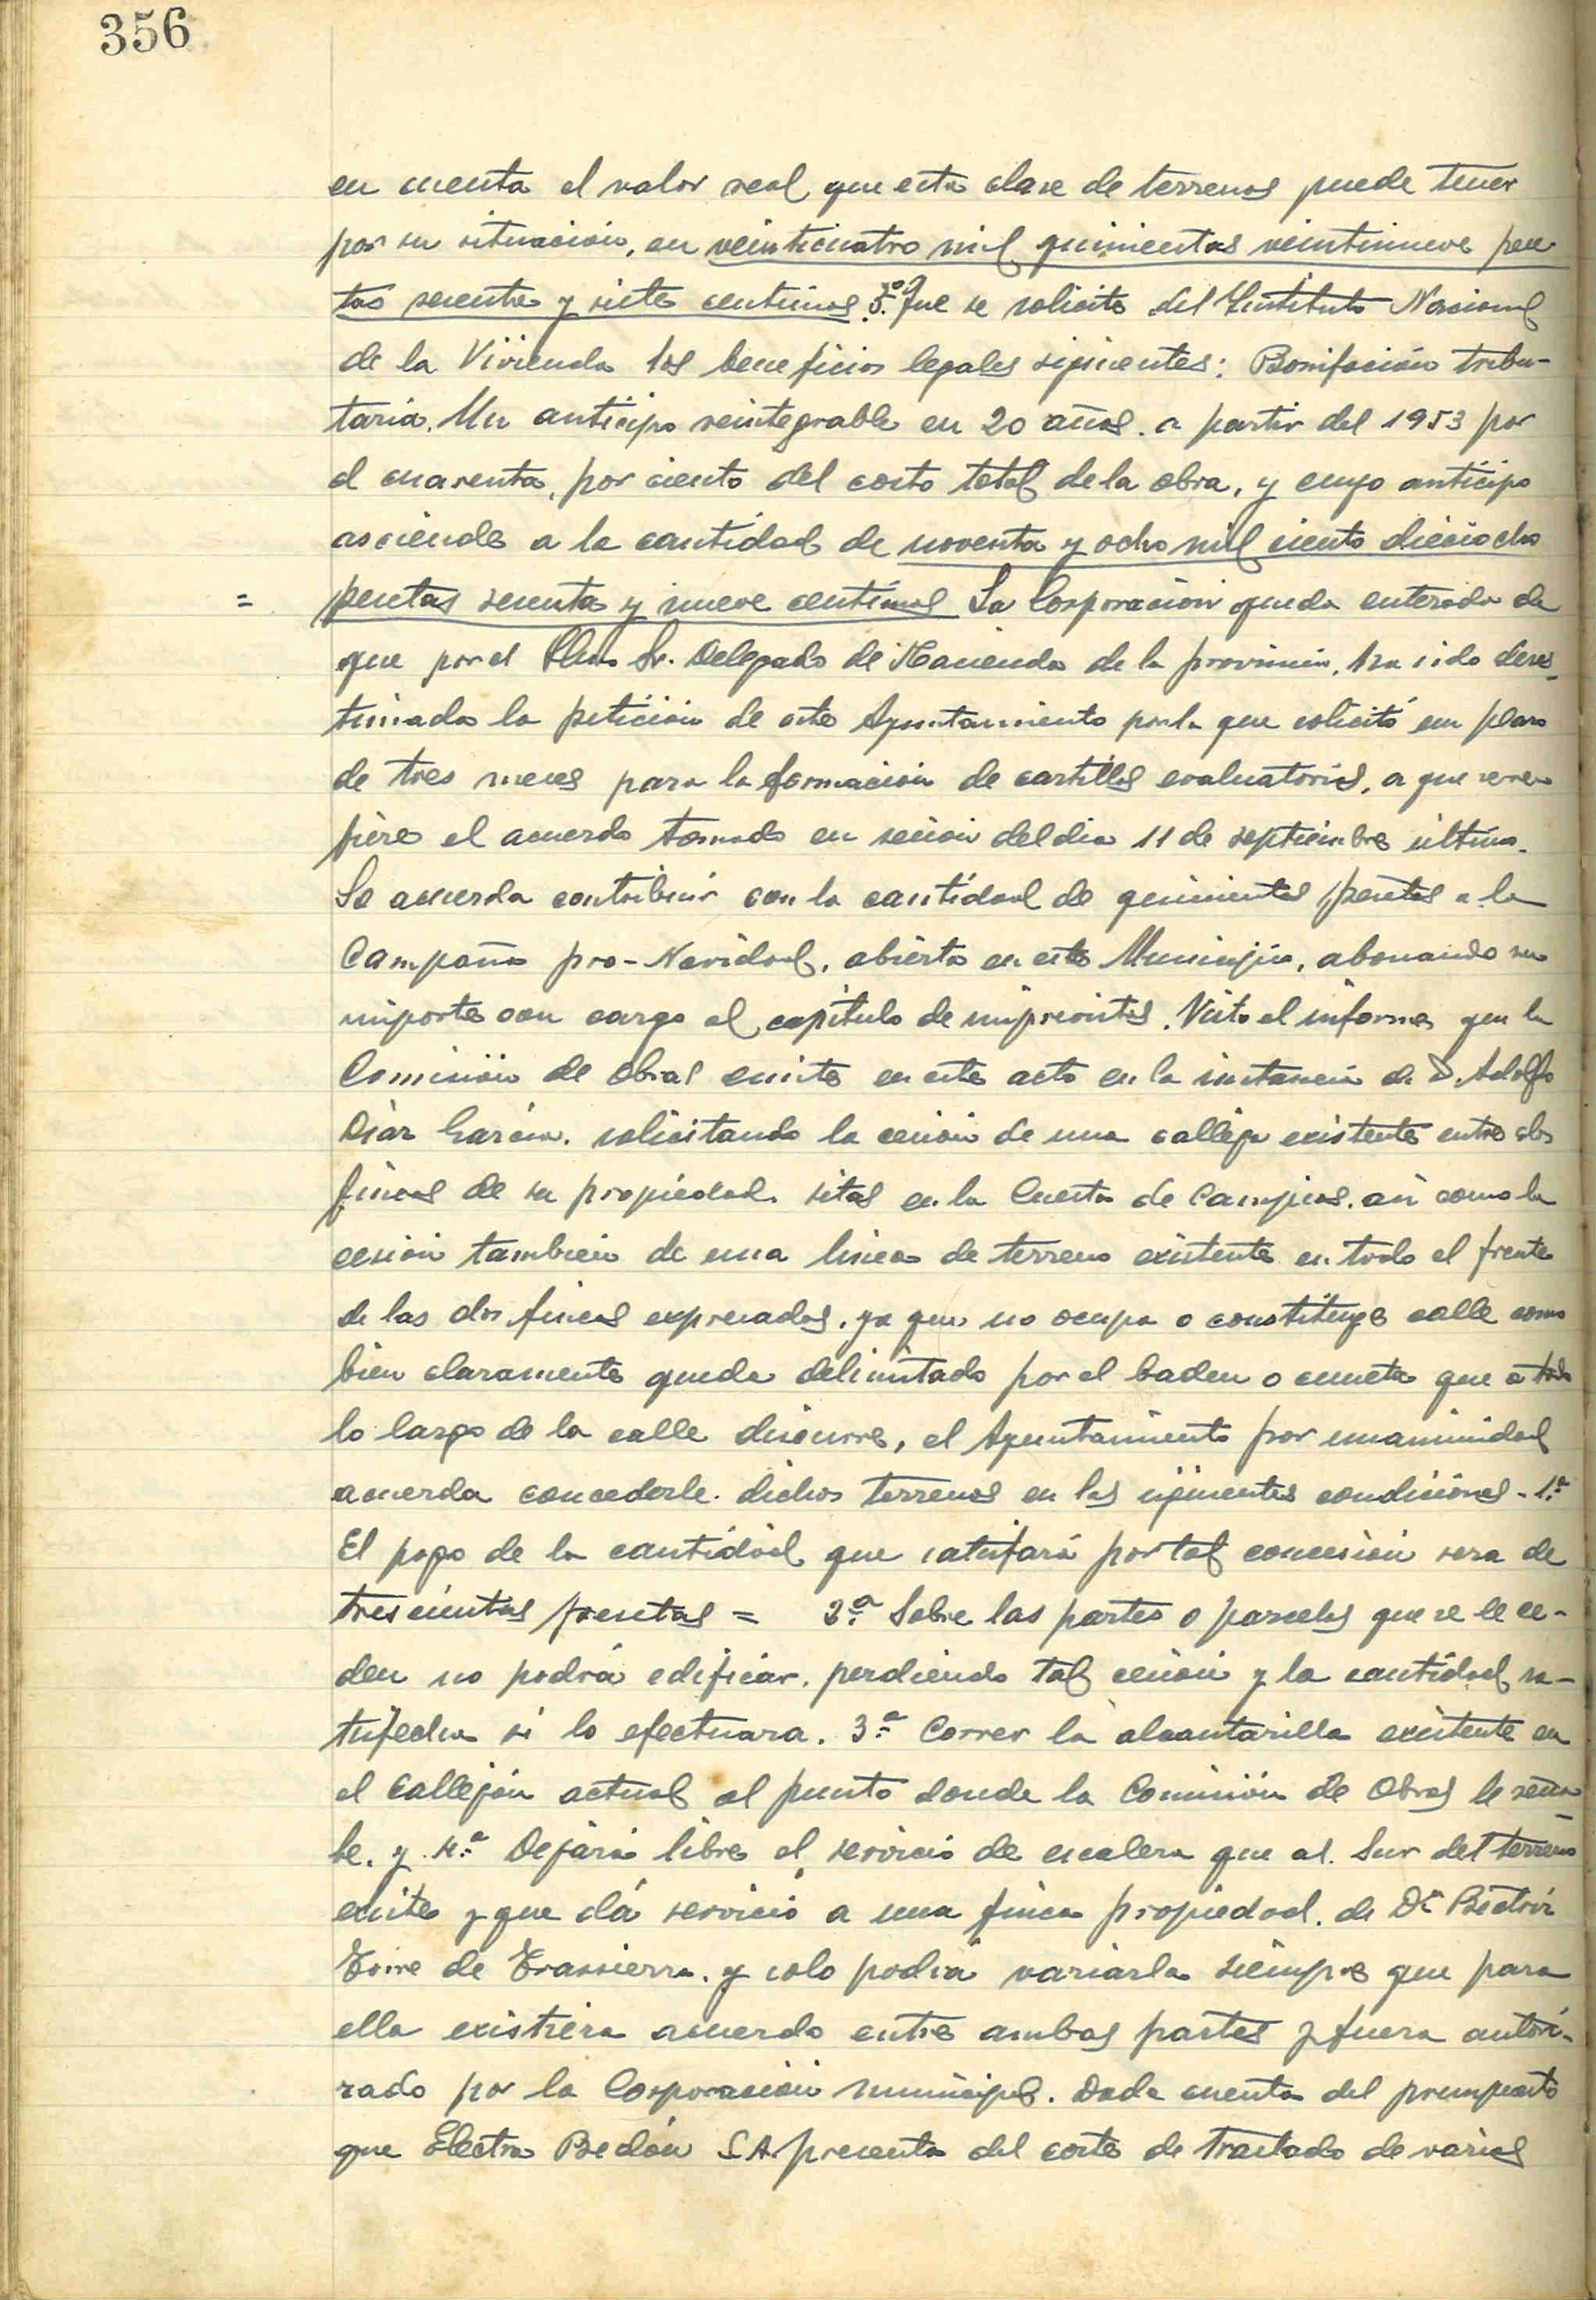 356
en cuenta el valor real que esta clase de terrenos puede tener
por su situación, en veinticuatro mil quinientas veintinueve pese-
tas sesenta y siete centimos. 5º. Que se solicite del Instituto Nacional
de la Vivienda los beneficios legales siguientes: Bonifación tribu-
taria. Un anticipo reintegrable en 20 años. a partir del 1953 por
el cuarenta, por ciento del costo total de la obra, y cuyo anticipo
asciende a la cantidad de noventa y ocho mil ciento dieciocho
= pesetas sesenta y nueve centimos La Corporación queda enterada de
que por el Ilmo Sr. Delegado de Hacienda de la provincia, ha sido deses-
timada la petición de este Ayuntamiento por la que solicitó un plazo
de tres meses para la formación de cartillas evaluatorias, a que se re-
fiere el acuerdo tomado en sesión del dia 11 de septiembre último.
Se acuerda contribuir con la cantidad de quinientas pesetas a la
Campaña pro-Navidad, abierta en este Municipio, abonando su
importe con cargo al capítulo de imprevistos. Visto el informe que la
Comisión de Obras emite en este acto en la instancia de D. Adolfo
Diaz Garcia. solicitando la cesión de una calleja existente entre dos
fincas de su propiedad. sitas en la Cuesta de Campios. asi como la
cesión tambien de una linea de terreno existente en todo el frente
de las dos fincas expresadas, ya que no ocupa o constituye calle como
bien claramente queda delimitado por el baden o cuneta que a todo
lo largo de la calle discurre, el Ayuntamiento por unanimidad
acuerda concederle. dichos terrenos en las siguientes condiciones - 1.ª
El pago de la cantidad que satisfará por tal concesión sera de
trescientas pesetas = 2.ª Sobre las partes o parcelas que se le ce-
den no podrá edificar. perdiendo tal cesión y la cantidad sa-
tisfecha si lo efectuara. 3.ª Correr la alcantarilla existente en
el callejón actual al punto donde la Comisión de Obras le seña-
le. y 4.ª Dejará libre el servicio de escalera que al Sur del terreno
existe y que dá servicio a una finca propiedad. de Dª Beatriz
Torre de Trassierra. y solo podrá variarla siempre que para
ello existiera acuerdo entre ambas partes y fuera autori-
zado por la Corporación municipal. Dada cuenta del presupuesto
que Electra Bedón S.A. presenta del coste de trasladado de varios